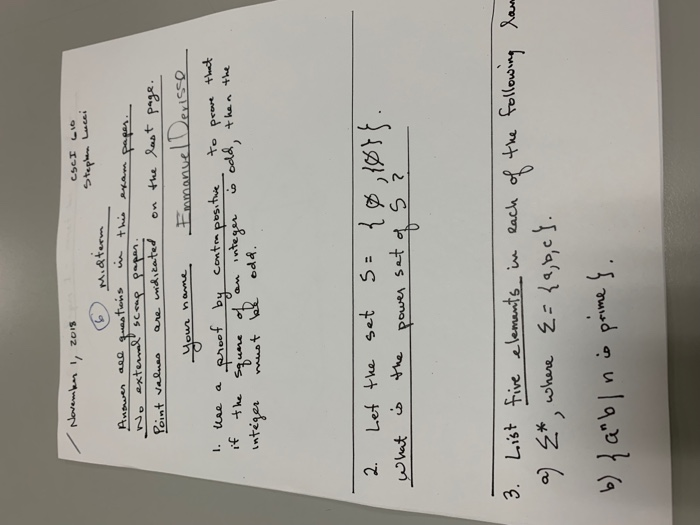 November 1, 2018 CSCI 610
Stephen Lucci
(6) Midterm
Answer all questions in this exam paper.
No external scrap paper.
Point values are indicated on the last page.
Your name Emmanuel Derisso
1. Use a proof by contrapositive to prove that
if the square of an integer is odd, then the
integer must be odd.
2. Let the set S = { ∅, {∅} }.
What is the power set of S?
3. List five elements in each of the following lan
a) Σ*, where Σ = {a,b,c}.
b) { aⁿb | n is prime }.